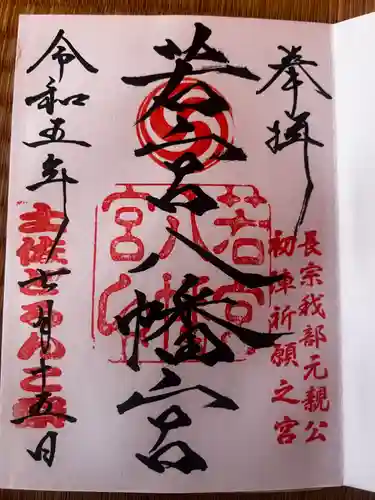 奉拝
長宗我部元親公
初陣祈願之宮
若宮八幡宮
若宮八幡宮印
令和五年七月十五日